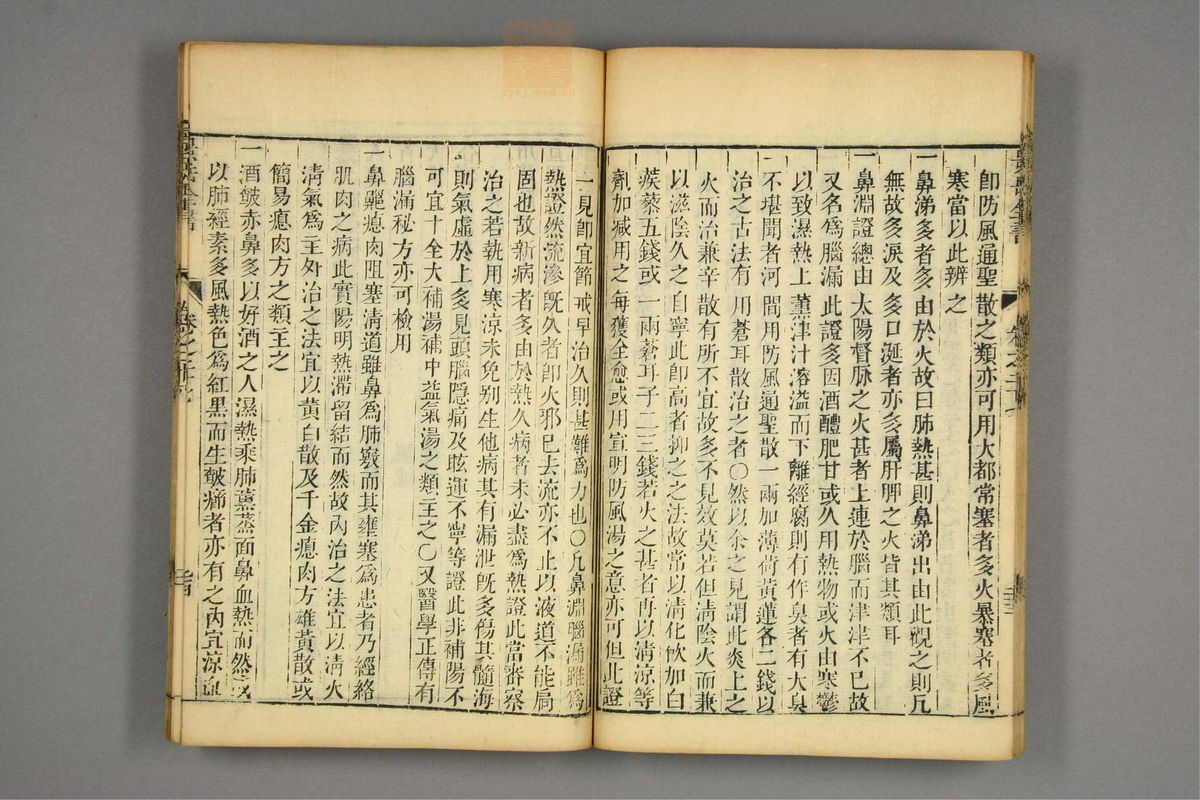 卽防風通聖散之類亦可用大都常塞者多火暴塞者多風
寒當以此辨之
一鼻涕多者多由於火故曰肺熱甚則鼻涕出由此觀之則凡
無故多淚及多口涎者亦多屬肝脾之火皆其類耳
一鼻淵證總由太陽督脉之火甚者上連於腦而津津不已故
又名爲腦漏此證多因酒醴肥甘或久用熱物或火由寒鬱
以致濕熱上薰津汁溶溢而下離經腐敗有作臭者有大臭
不堪聞者河間用防風通聖散一兩加薄荷黃連各二錢以
治之古法有用蒼耳散治之者〇然以余之見謂此炎上之
火而治兼辛散有所不宜故多不見效莫若但淸陰火而兼
以滋陰久之自寧此卽高者抑之之法故常以淸化飲加白
蒺藜五錢或一兩蒼耳子二三錢若火之甚者再以淸涼等
劑加減用之每獲全愈或用宣明防風湯之意亦可但此證
一見卽宜節戒早治久則甚難爲力也〇凡鼻淵腦漏雖爲
熱證然流滲旣久者卽火邪已去流亦不止以液道不能局
固也故新病者多由於熱久病者未必盡爲熱證此當審察
治之若執用寒涼未免别生他病其有漏泄旣多傷其髓海
則氣虛於上多見頭腦隱痛及眩運不寧等證此非補陽不
可宜十全大補湯補中益氣湯之類主之〇又醫學正傳有
腦漏秘方亦可檢用
一鼻齆瘜肉阻塞淸道雖鼻爲肺竅而其壅塞爲患者乃經絡
肌肉之病此實陽明熱滯留結而然故內治之法宜以淸火
淸氣爲主外治之法宜以黃白散及千金瘜肉方雄黃散或
簡易瘜肉方之類主之
一酒皶赤鼻多以好酒之人濕熱乘肺薰蒸面鼻血熱而然或
以肺經素多風熱色爲紅黑而生皶癤者亦有之內宜涼血